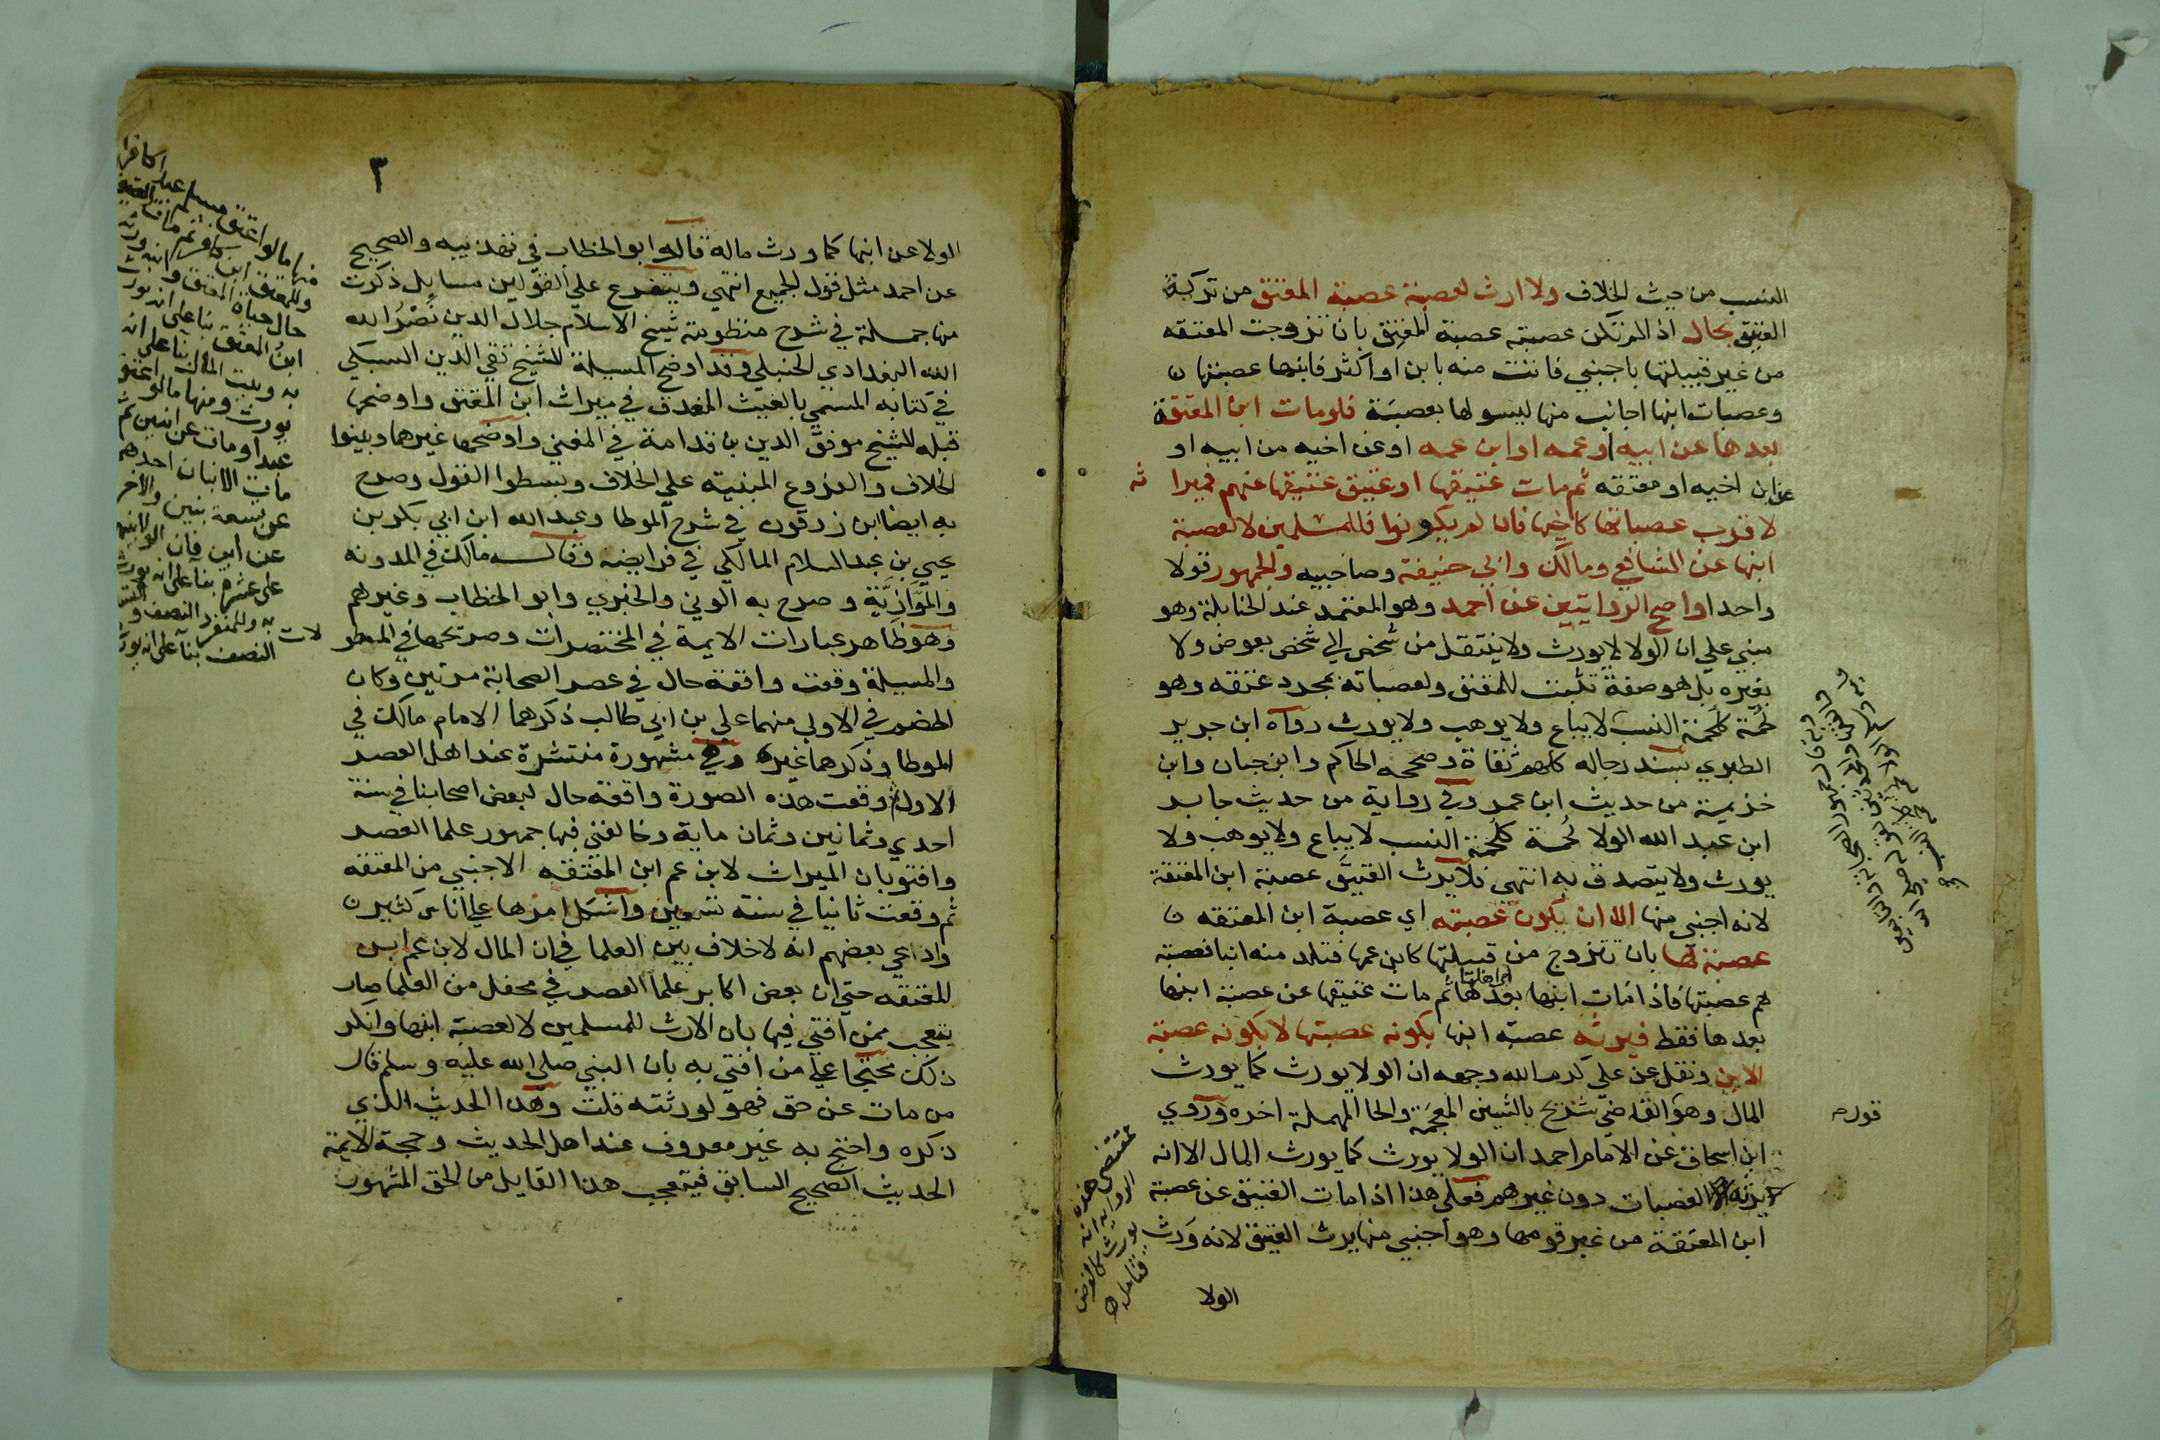 النسب من حيث الخلاف ولا ارث لعصبة عصبة المعتق من تركة
العتيق بحال اذا لم تكن عصبته عصبة المعتق بان تزوجت المعتقه
من غير قبيلتها باجنبي فاتت منه بابن او اكثر فابنها عصبتها
وعصبات ابنها اجانب منها ليسو لها بعصبة فلو مات ابن المعتقة
بعدها عن ابيه او عمه او ابن عمه او عن اخيه من ابيه او
عن ابن اخيه او معتقه ثم مات عتيقها او عتيق عتيقها عنهم فميرا ثه
لاقرب عصباتها كاخيها فان لم يكونوا فللمسلمين لا لعصبة
ابنها عن الشافعي ومالك وابي حنيفة وصاحبيه والجمهور قولا
واحدا واصح الروايتين عن احمد وهو المعتمد عند الحنابلة وهو
مبني علي ان الولا لا يورث ولا ينتقل من شخص الي شخص بعوض ولا
بغيره بل هو صفة تثبت للمعتق ولعصباته بمجرد عتقه وهو
لحمة كلحمة النسب لا يباع ولا يوهب ولا يورث رواه ابن جرير
الطبري بسند رجاله كلهم ثقاة وصححه الحاكم وابن حبان وابن
خزيمة من حديث ابن عمر وفي رواية من حديث جابر
ابن عبد الله الولا لحمة كلحمة النسب لا يباع ولا يوهب ولا
يورث ولا يتصدق به انتهي فلا يرث العتيق عصبة ابن المعتقة
لانه اجنبي منها الا ان يكون عصبته اي عصبة ابن المعتقه
عصبة لها بان تتزوج من قبيلتها كابن عمها فتلد منه ابنا فعصبته
هم عصبتها فاذا مات ابنها بعدها ثم مات عتيقها عن عصبة ابنها
بعدها فقط فيرثه عصبة ابنها بكونه عصبتها لا بكونه عصبة
الابن ونقل عن علي كرم الله وجهه ان الولا يورث كما يورث
المال وهو القاضي شريح بالشين المعجمة والحا المهملة اخره وروي
قوله
ابن اسحاق عن الامام احمد ان الولا يورث كما يورث المال الا انه
يرثه العصبات دون غيرهم فعلي هذا اذا مات العتيق عن عصبة
ابن المعتقة من غير قومها وهو اجنبي منها يرث العتيق لانه ورث
الولا
مقتضى هذه
الرواية انه
٣
الولا عن ابنها كما ورث ماله قاله ابو الخطاب في تهذيبه والصحيح
عن احمد مثل قول الجميع انتهي ويتفرع علي القولين مسايل ذكرت
منها جملة في شرح منظومة شيخ الاسلام جلال الدين نصر الله
الله البغدادي الحنبلي وقد اوضح المسيلة للشيخ تقي الدين السبكي
في كتابه المسمي بالغيث المغدق في ميراث ابن المعتق واوضحها
قبله للشيخ موفق الدين بن قدامة في المغني واوضحها غيرهما وبينوا
الخلاف والفروع المبنيته علي الخلاف وبسطوا القول وصرح
به ايضا ابن زرقون في شرح الموطا وعبد الله ابن ابي بكر بن
يحيي بن عبد السلام المالكي في فرايضه وقال مالك في المدونه
والموازية وصرح به الوني والخبري وابو الخطاب وغيرهم
وهو ظاهر عبارات الايمة في المختصرات وصرتحها في المطو لات
والمسيلة وقعت واقعة حال في عصر الصحابة مرتين وكان
الحضور في الاولي منهما علي بن ابي طالب ذكرهما الامام مالك في
الموطا وذكرهما غيره وهي مشهورة منتشرة عند اهل العصر
الاول وقعت هذه الصورة واقعة حال لبعض اصحابنا في سنة
احدي وثمانين وثمان ماية وخالفني فيها جمهور علما العصر
وافتو بان الميراث لابن عم ابن المعتقه الاجنبي من المعتقه
ثم وقعت ثانيا في سنة تسعين واشكل امرها علي اناس كثيرن
وادعي بعضهم انه لا خلاف بين العلما في ان المال لابن عم ابن
للمعتقه حتي ان بعض اكابر علما العصر في محفل من العلما صار
يتعجب ممن افتي فيها بان الارث للمسلمين لا لعصبة ابنها وانكر
ذلك محتجا علي من افتي به بان النبي صلي الله عليه وسلم قال
من مات عن حق فهو لورثته قلت وهذا الحديث الذي
ذكره واحتج به غير معروف عند اهل الحديث وحجة الايمة
الحديث الصحيح السابق فيتعجب هذا القايل من الحق المشهور
منها ما لو اعتق مسلم عبدا كافرا
وللمعتق ابن كافر ثم مات العتيق
حال حياة المعتق
ابن المعتق بنا علي انه يورث
به وبيت المال بنا علي انه
يورث ومنها ما لو اعتق
عبدا ومات عن ابنين ثم
مات الابنان احدهم
عن تسعة بنين والاخر
عن ابن فان الولا بينهم
علي عشرة بنا علي انه يورث
به وللمنفرد النصف و
النصف بنا علي انه يورث